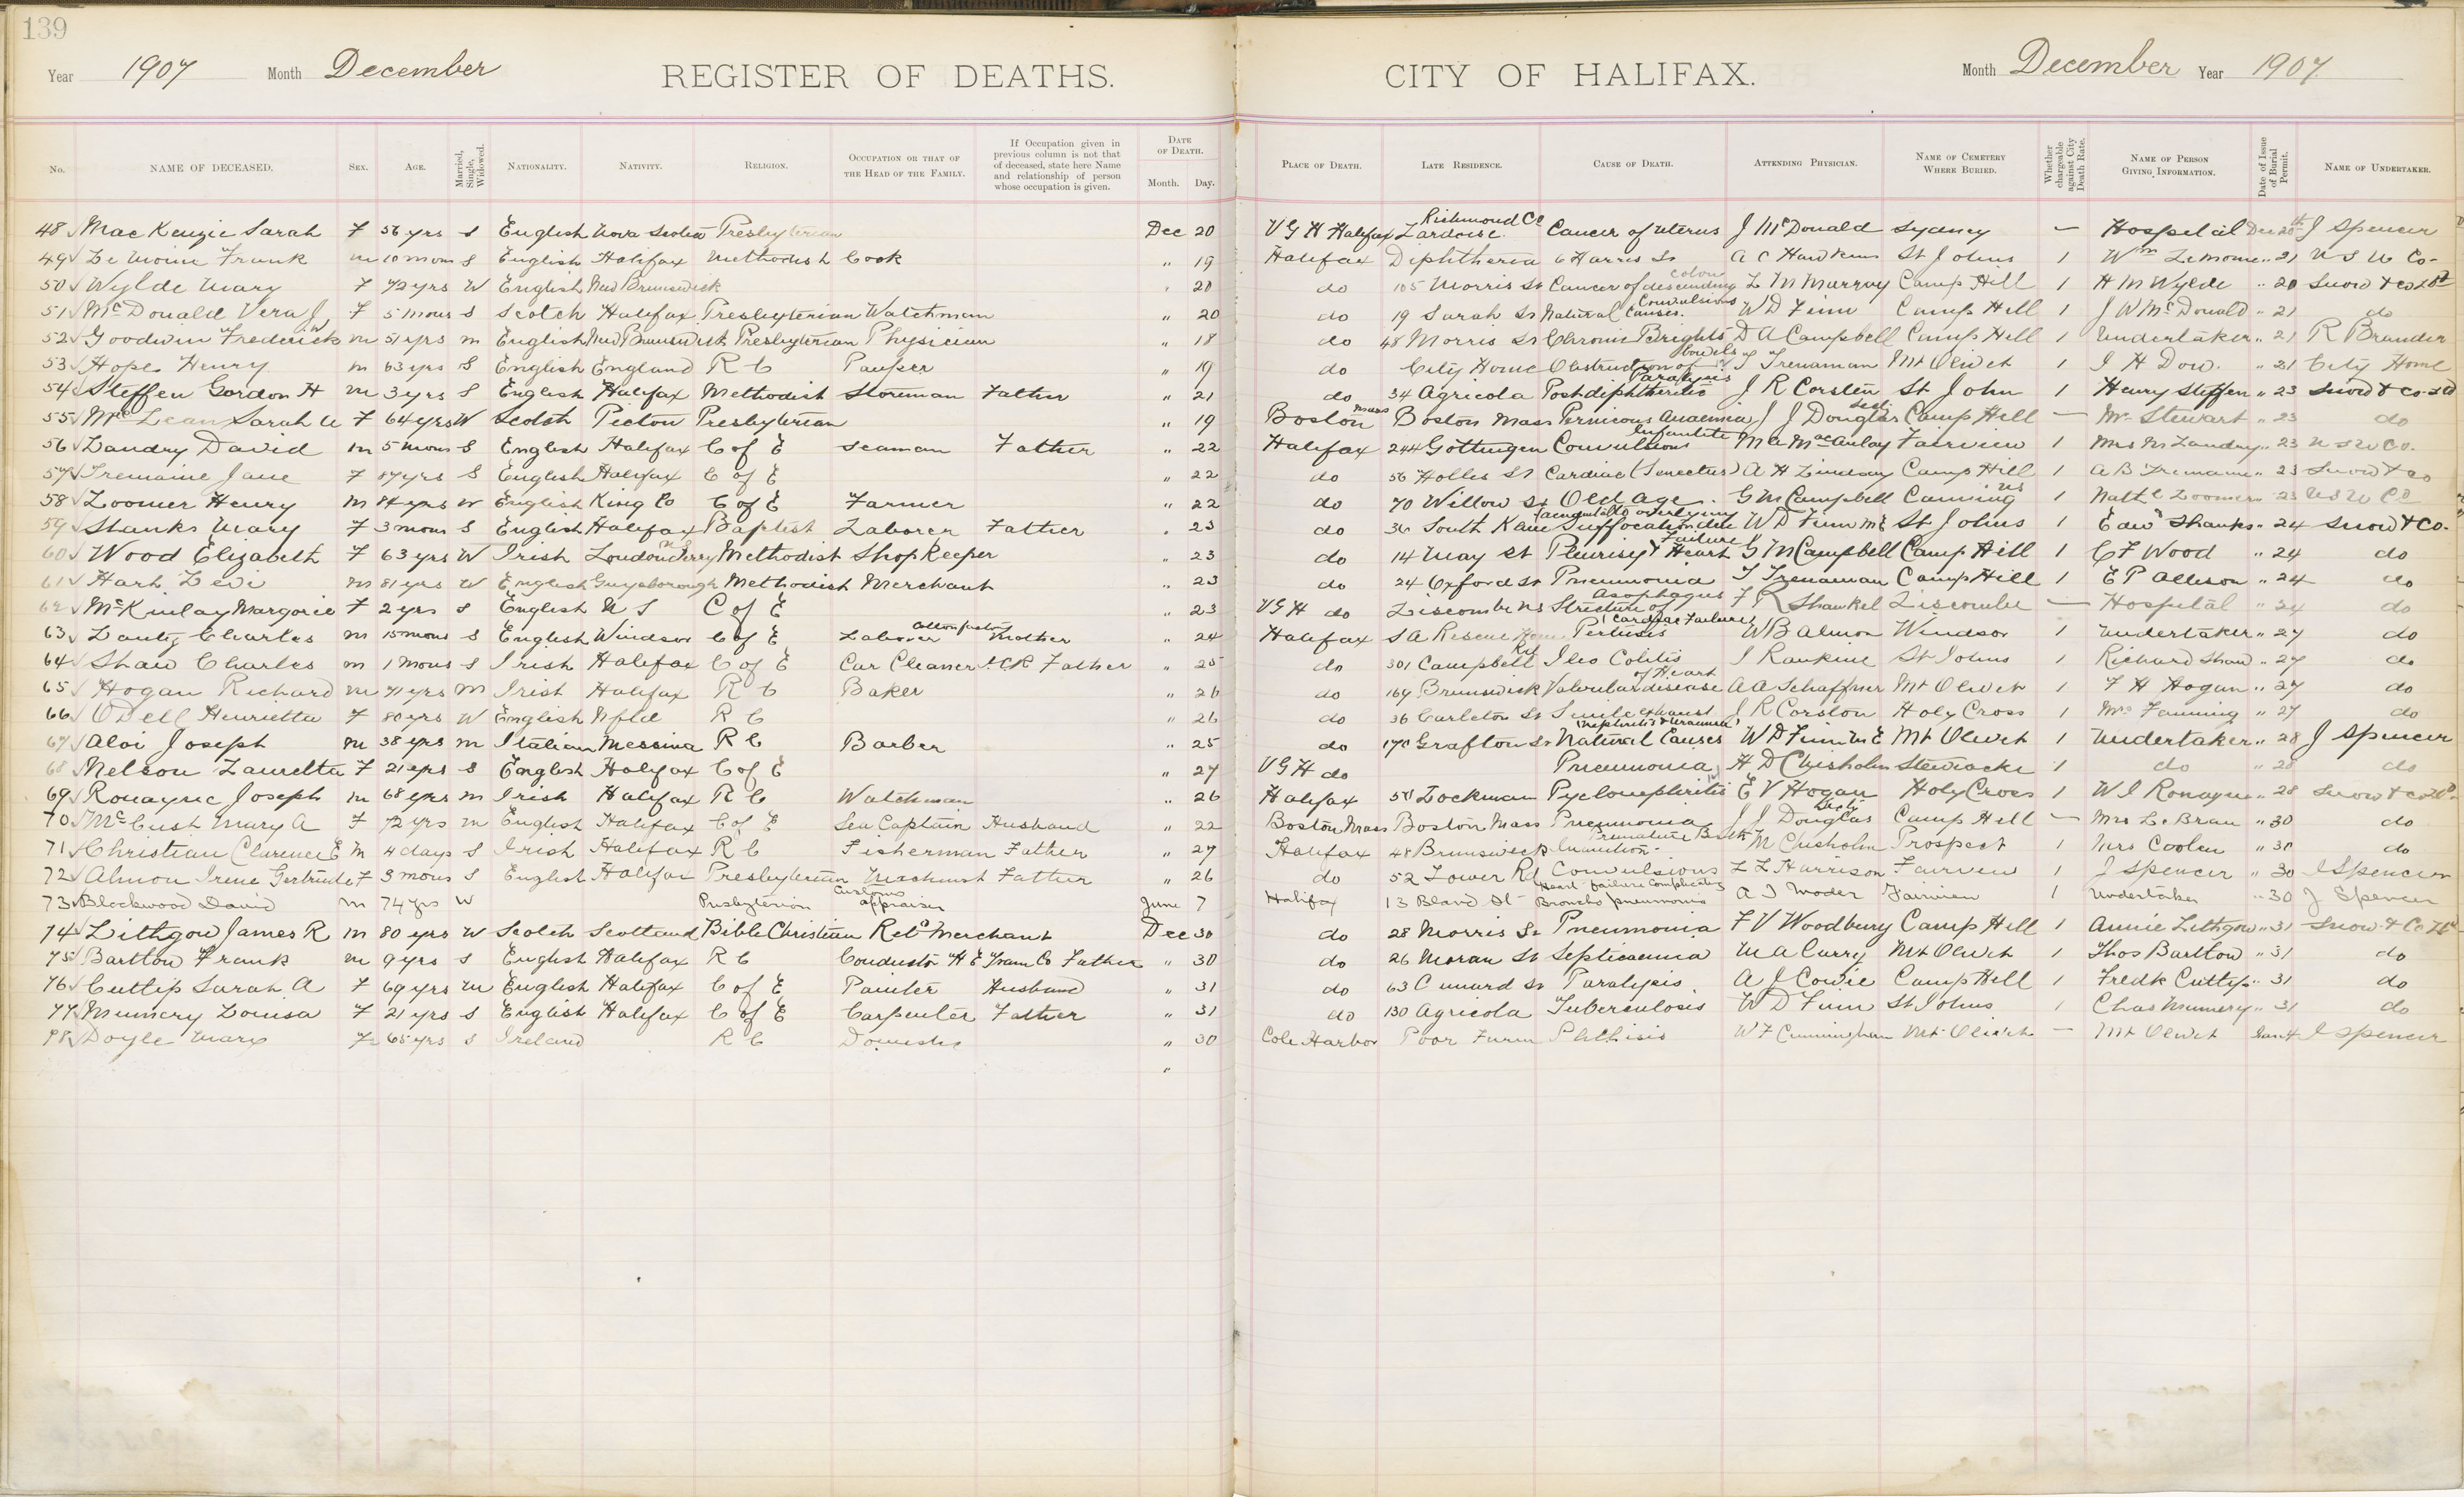 139
Year 1907 Month December REGISTER OF DEATHS. CITY OF HALIFAX. Month December Year 1907
No. NAME OF DECEASED. SEX. AGE. Married, Single, Widowed. NATIONALITY. NATIVITY. RELIGION. OCCUPATION OR THAT OF THE HEAD OF THE FAMILY. If Occupation given in previous column is not that of deceased, state here Name and relationship of person whose occupation is given. DATE OF DEATH. Month. Day. PLACE OF DEATH. LATE RESIDENCE. CAUSE OF DEATH. ATTENDING PHYSICIAN. NAME OF CEMETERY WHERE BURIED. Whether chargeable against City Death Rate. NAME OF PERSON GIVING INFORMATION. Date of Issue of Burial Permit. NAME OF UNDERTAKER.
48 Mac Kenzie Sarah F 56 yrs S English Nova Scotia Presbyterian Dec 20 V G H Halifax Lardoise Richmond Co Cancer of uterus J McDonald Sydney — Hospital Dec 20th J Spencer
49 Le Moine Frank M 10 mons S English Halifax Methodist Cook " 19 Halifax Diphtheria 6 Harris St A C Hawkins St Johns 1 Wm LeMoine " 21 N S U Co.
50 Wylde Mary F 72 yrs W English New Brunswick " 20 do 105 Morris St Cancer of descending colon L M Murray Camp Hill 1 H M Wylde " 20 Snow & Co Ltd
51 McDonald Vera J F 5 mons S Scotch Halifax Presbyterian Watchman " 20 do 19 Sarah St Natural Causes. Convulsions W D Finn Camp Hill 1 J W McDonald " 21 do
52 Goodwin Frederick W M 51 yrs M English New Brunswick Presbyterian Physician " 18 do 48 Morris St Chronic Brights D A Campbell Camp Hill 1 Undertaker " 21 R Brander
53 Hope Henry M 63 yrs S English England R C Pauper " 19 do City Home Obstruction of bowels T Trenaman Mt Olivet 1 J H Dow. " 21 City Home
54 Steffen Gordon H M 3 yrs S English Halifax Methodist Storeman Father " 21 do 34 Agricola Post diphtheritic Paralysis J R Corston St John 1 Henry Steffen " 23 Snow & Co Ltd
55 McLean Sarah A F 64 yrs W Scotch Pictou Presbyterian " 19 Boston Mass Boston Mass Pernicious Anaemia J J Douglas Sect. Camp Hill — Mr Stewart " 23 do
56 Landry David M 5 mons S English Halifax C of E Seaman Father " 22 Halifax 244 Gottingen Convulsions Infantile M A MacAulay Fairview 1 Mrs M Landry " 23 N S U Co.
57 Tremaine Jane F 87 yrs S English Halifax C of E " 22 do 56 Hollis St Cardiac (Senectus) A H Lindsay Camp Hill 1 A B Tremaine " 23 Snow & Co
58 Loomer Henry M 84 yrs W English King Co C of E Farmer " 22 do 70 Willow St Old age. G M Campbell Canning NS 1 Loomer 23 N S U Co
59 Shanks Mary F 3 mons S English Halifax Baptist Laborer Father " 23 do 36 South Kane Suffocation due accidental to overlying W D Finn M E St Johns 1 Edwd Shanks " 24 Snow & Co.
60 Wood Elizabeth F 63 yrs W Irish Londonderry N S Methodist ShopKeeper " 23 do 14 May St Pleurisy & Heart Failure G M Campbell Camp Hill 1 C F Wood " 24 do
61 Hart Levi M 81 yrs W English Guysborough Methodist Merchant " 23 do 24 Oxford St Pneumonia T Trenaman Camp Hill 1 E P Allison " 24 do
62 McKinlay Margorie F 2 yrs S English N S C of E " 23 V G H do Liscombe NS Stricture of Asophagus F R Shankel Liscombe — Hospital " 24 do
63 Charles M 15 mons S English Windsor C of E Laborer Cotton factory Mother " 24 Halifax S A Rescue Home Pertusis (Cardiac Failure) W B Almon Windsor 1 Undertaker " 27 do
64 Shaw Charles M 1 mons S Irish Halifax C of E Car Cleaner I.C.R Father " 25 do 301 Campbell Rd Ileo Colitis J Rankine St Johns 1 Richard Shaw " 27 do
65 Hogan Richard M 71 yrs M Irish Halifax R C Baker " 26 do 169 Brunswick Valvular disease of Heart A A Schaffner Mt Olivet 1 F H Hogan " 27 do
66 O'Dell Henrietta F 80 yrs W English Nfld R C " 26 do 36 Carleton St Senile exhaust J R Corston Holy Cross 1 Mrs Fanning " 27 do
67 Aloi Joseph M 38 yrs M Italian Messina R C Barber " 25 do 170 Grafton St Natural Causes (Nephritis & Uraemia) W D Finn M E Mt Olivet 1 Undertaker " 28 J Spencer
68 Nelson Lauretta F 21 yrs S English Halifax C of E " 27 V G H do Pneumonia H D Chisholm Stewiacke 1 do " 28 do
69 Ronayne Joseph M 68 yrs M Irish Halifax R C Watchman " 26 Halifax 501 Lockman Pyelonephritis E V Hogan Holy Cross 1 W J Ronayne " 28 Snow & Co Ltd
70 Mary A F 72 yrs M English Halifax C of E Sea Captain Husband " 22 Boston Mass Boston Mass Pneumonia J J Douglas Secty Camp Hill — Mrs Le Brau " 30 do
71 Christian Clarence E M 4 days S Irish Halifax R C Fisherman Father " 27 Halifax 48 Brunswick Inanition. Premature Birth M Chisholm Prospect 1 Mrs Coolen " 30 do
72 Almon Irene Gertrude F 3 mons S English Halifax Presbyterian Machinist Father " 26 do 52 Lower Rd Convulsions L L Harrison Fairview 1 J Spencer " 30 J Spencer
73 Blackwood David M 74 yrs W Presbyterian Customs appraiser June 7 Halifax 13 Bland St Heart failure complicating Broncho pneumonia A I Mader Fairview 1 Undertaker " 30 J Spencer
74 Lithgow James R M 80 yrs W Scotch Scotland Bible Christian Retd Merchant Dec 30 do 28 Morris St Pneumonia F V Woodbury Camp Hill 1 Annie Lithgow " 31 Snow & Co Ltd
75 Bartlow Frank M 9 yrs S English Halifax R C Conductor H E Tram Co Father " 30 do 26 Moran St Septicaemia M A Curry Mt Olivet 1 Thos Bartlow " 31 do
76 Cutlip Sarah A F 69 yrs M English Halifax C of E Painter Husband " 31 do 63 Cunard St Paralysis. A J Cowie Camp Hill 1 Fredk Cutlip " 31 do
77 Mumery Louisa F 21 yrs S English Halifax C of E Carpenter Father " 31 do 130 Agricola Tuberculosis W D Finn St Johns 1 Chas Mumery " 31 do
78 Doyle Mary F 65 yrs S Ireland R C Domestic " 30 Cole Harbor Poor Farm Phthisis W F Cunningham Mt Olivet — Mt Olivet Jan 4 J Spencer
"